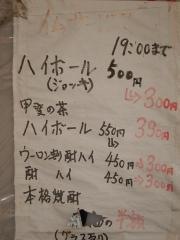 19:00まで
ハイボール 500円
(ジョッキ) ↳300円
甲斐の茶
ハイボール 550円 390円
ウーロン割 酎ハイ 450円→300円
酎ハイ 450円→300円
本格焼酎
の半額
(グラス売り)